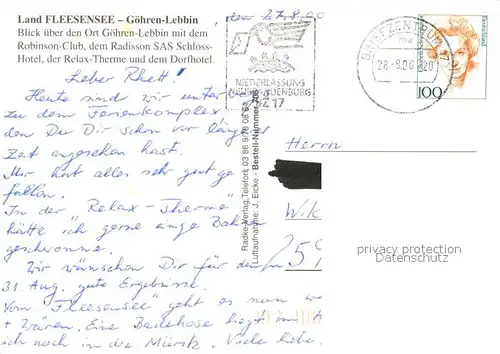 Land FLEESENSEE – Göhren-Lebbin
Blick über den Ort Göhren-Lebbin mit dem
Robinson-Club, dem Radisson SAS Schloss-
Hotel, der Relax-Therme und dem Dorfhotel.
den 27.8.00
NIEDERLASSUNG
NEUBRANDENBURG
BZ 17
BRIEFZENTRUM 17
28.-8.00
Deutschland
100
Lieber Rhett!
Heute sind wir unter
zu dem Ferienkomplex,
den Du Dir schon vor langer
Zeit angesehen hast.
Mir hat alles sehr gut ge
fallen.
In der "Relax-Therme"
hätte ich gerne eine Bahn
geschwommen.
Wir wünschen Dir für den
31. Aug. gute Ergebnisse.
Vom "Fleesensee" geht es nun
+ Wären. Eine Badehose liegt im
ich noch in die Müritz. Viele liebe
Radke-Verlag, Telefon 03 86 9/78 08 63
Luftaufnahme: J. Eicke - Bestell-Nummer
Herrn
Wik
259
privacy protection
Datenschutz